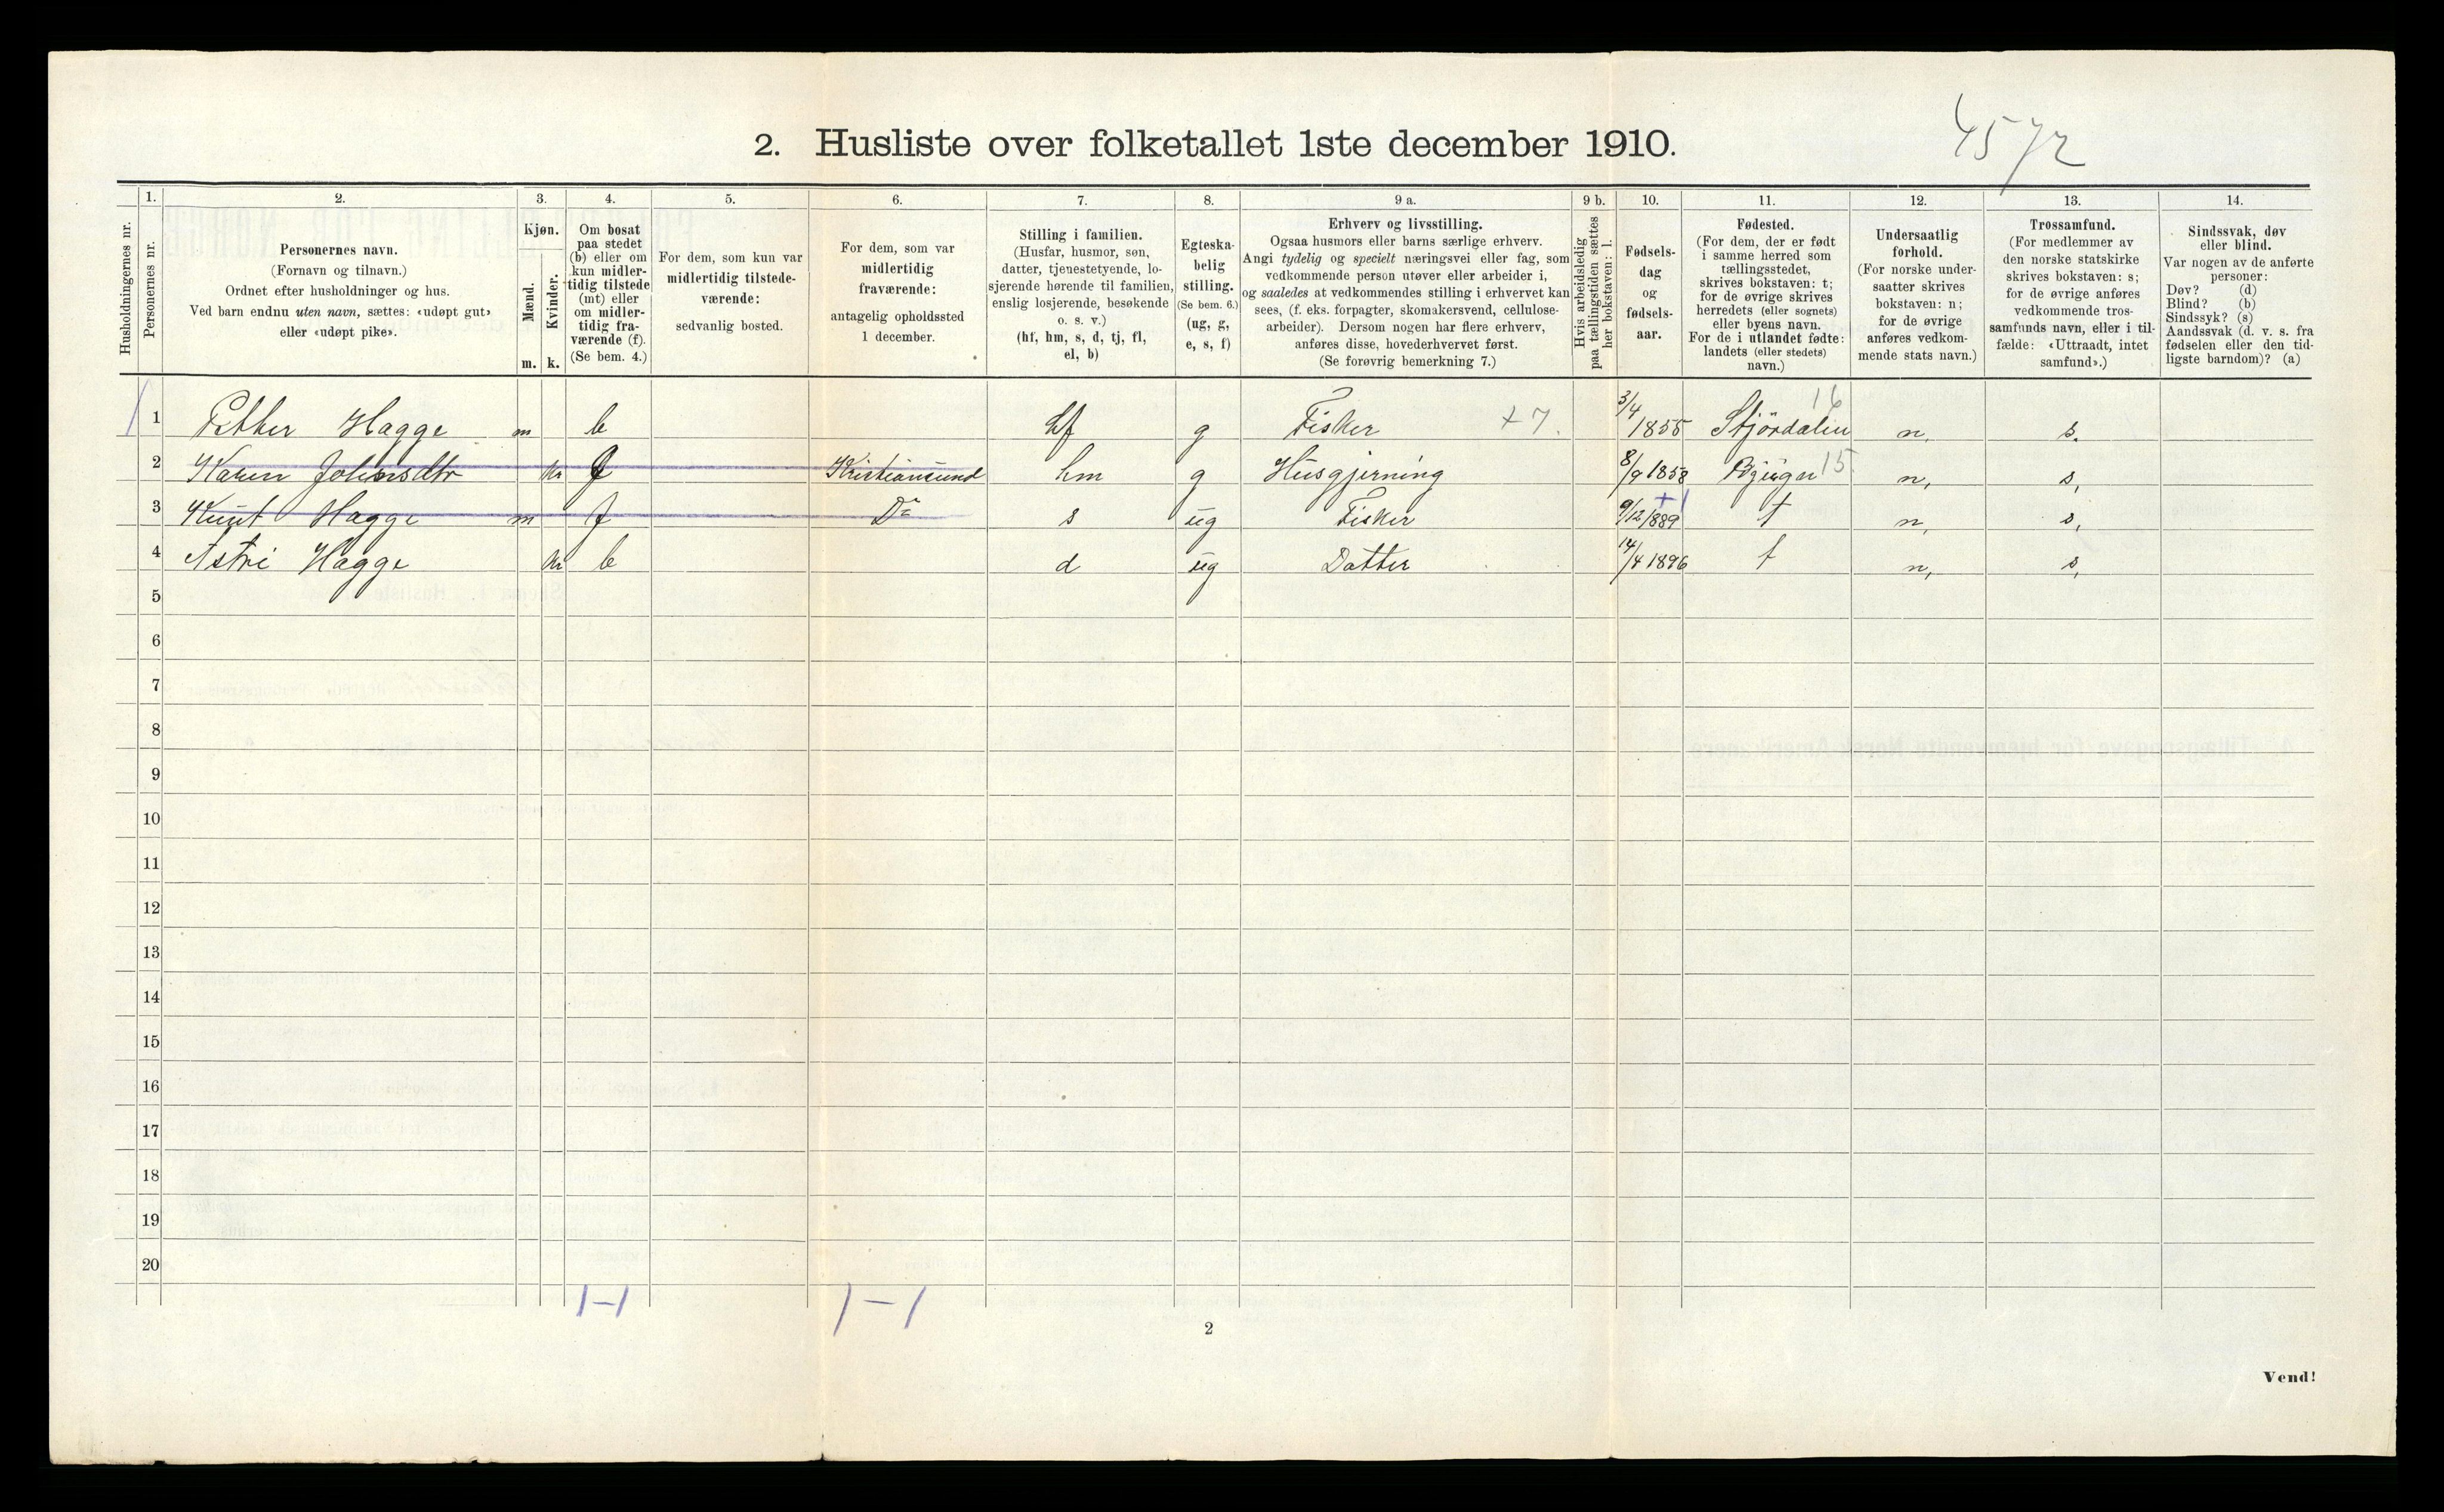 4572
2. Husliste over folketallet 1ste december 1910.
Husholdningernes nr.
1.
Personernes nr.
2.
Personernes navn.
(Fornavn og tilnavn.)
Ordnet efter husholdninger og hus.
Ved barn endnu uten navn, sættes: «udøpt gut»
eller «udøpt pike».
3.
Kjøn.
Mænd.
Kvinder.
m. k.
4.
Om bosat
paa stedet
(b) eller om
kun midler-
tidig tilstede
(mt) eller
om midler-
tidig fra-
værende (f).
(Se bem. 4.)
5.
For dem, som kun var
midlertidig tilstede-
værende:
sedvanlig bosted.
6.
For dem, som var
midlertidig
fraværende:
antagelig opholdssted
1 december.
7.
Stilling i familien.
(Husfar, husmor, søn,
datter, tjenestetyende, lo-
sjerende hørende til familien,
enslig losjerende, besøkende
o. s. v.)
(hf, hm, s, d, tj, fl,
el, b)
8.
Egteska-
belig
stilling.
(Se bem. 6.)
(ug, g,
e, s, f)
9 a.
Erhverv og livsstilling.
Ogsaa husmors eller barns særlige erhverv.
Angi tydelig og specielt næringsvei eller fag, som
vedkommende person utøver eller arbeider i,
og saaledes at vedkommendes stilling i erhvervet kan
sees, (f. eks. forpagter, skomakersvend, cellulose-
arbeider). Dersom nogen har flere erhverv,
anføres disse, hovederhvervet først.
(Se forøvrig bemerkning 7.)
9 b.
Hvis arbeidsledig
paa tællingstiden sættes
her bokstaven: l.
10.
Fødsels-
dag
og
fødsels-
aar.
11.
Fødested.
(For dem, der er født
i samme herred som
tællingsstedet,
skrives bokstaven: t;
for de øvrige skrives
herredets (eller sognets)
eller byens navn.
For de i utlandet fødte:
landets (eller stedets)
navn.)
12.
Undersaatlig
forhold.
(For norske under-
saatter skrives
bokstaven: n;
for de øvrige
anføres vedkom-
mende stats navn.)
13.
Trossamfund.
(For medlemmer av
den norske statskirke
skrives bokstaven: s;
for de øvrige anføres
vedkommende tros-
samfunds navn, eller i til-
fælde: «Uttraadt, intet
samfund».)
14.
Sindssvak, døv
eller blind.
Var nogen av de anførte
personer:
Døv? (d)
Blind? (b)
Sindssyk? (s)
Aandssvak (d. v. s. fra
fødselen eller den tid-
ligste barndom)? (a)
1 Petter Hagge m b hf g Fisker +7. 3/4 1855 Stjördalen 16 n, s.
2 Karen Johnsdtr k f Kristiansund hm g Husgjerning 8/9 1858 Bjugn 15 n, s,
3 Knut Hagge m f Do s ug Fisker 9/12 1889 t n, s,
4 Astri Hagge k b d ug Datter 14/4 1896 t n, s,
5
6
7
8
9
10
11
12
13
14
15
16
17
18
19
20
1-1 1-1
2
Vend!